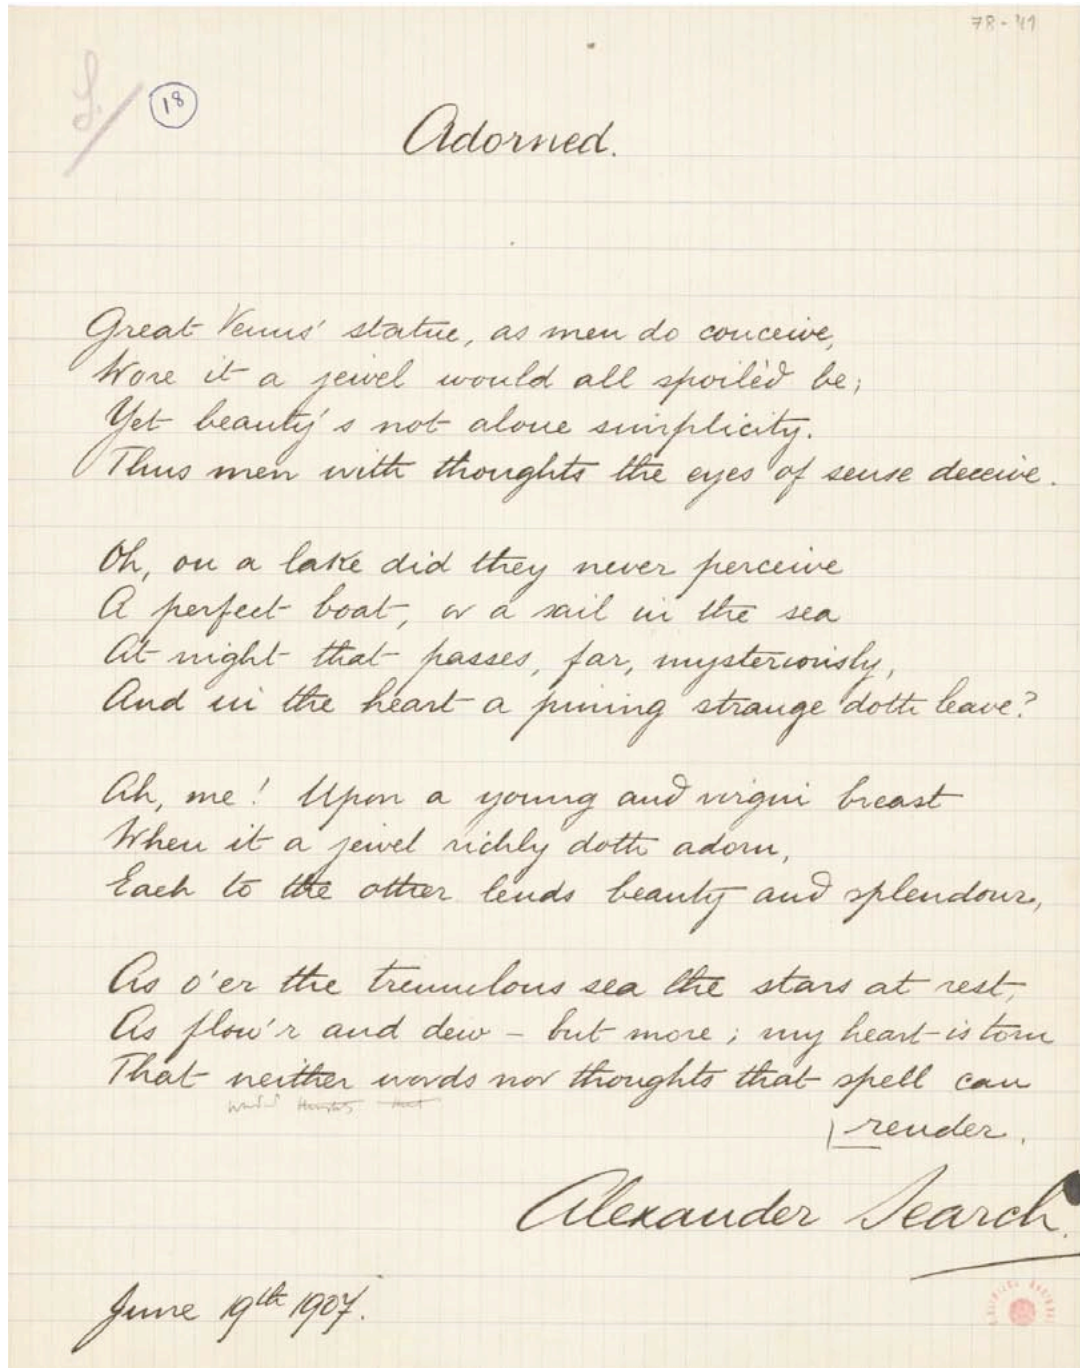 78-41
18
Adorned.
Great Venus' statue, as men do conceive,
Wore it a jewel would all spoilèd be;
Yet beauty's not alone simplicity.
Thus men with thoughts the eyes of sense deceive.
Oh, on a lake did they never perceive
A perfect boat, or a sail in the sea
At night that passes, far, mysteriously,
And in the heart a pining strange doth leave?
Ah, me! Upon a young and virgin breast
When it a jewel richly doth adorn,
Each to the other lends beauty and splendour,
As o'er the tremulous sea the stars at rest,
As flow'r and dew – but more; my heart is torn
That neither words nor thoughts that spell can
render.
Alexander Search.
June 19th 1907.